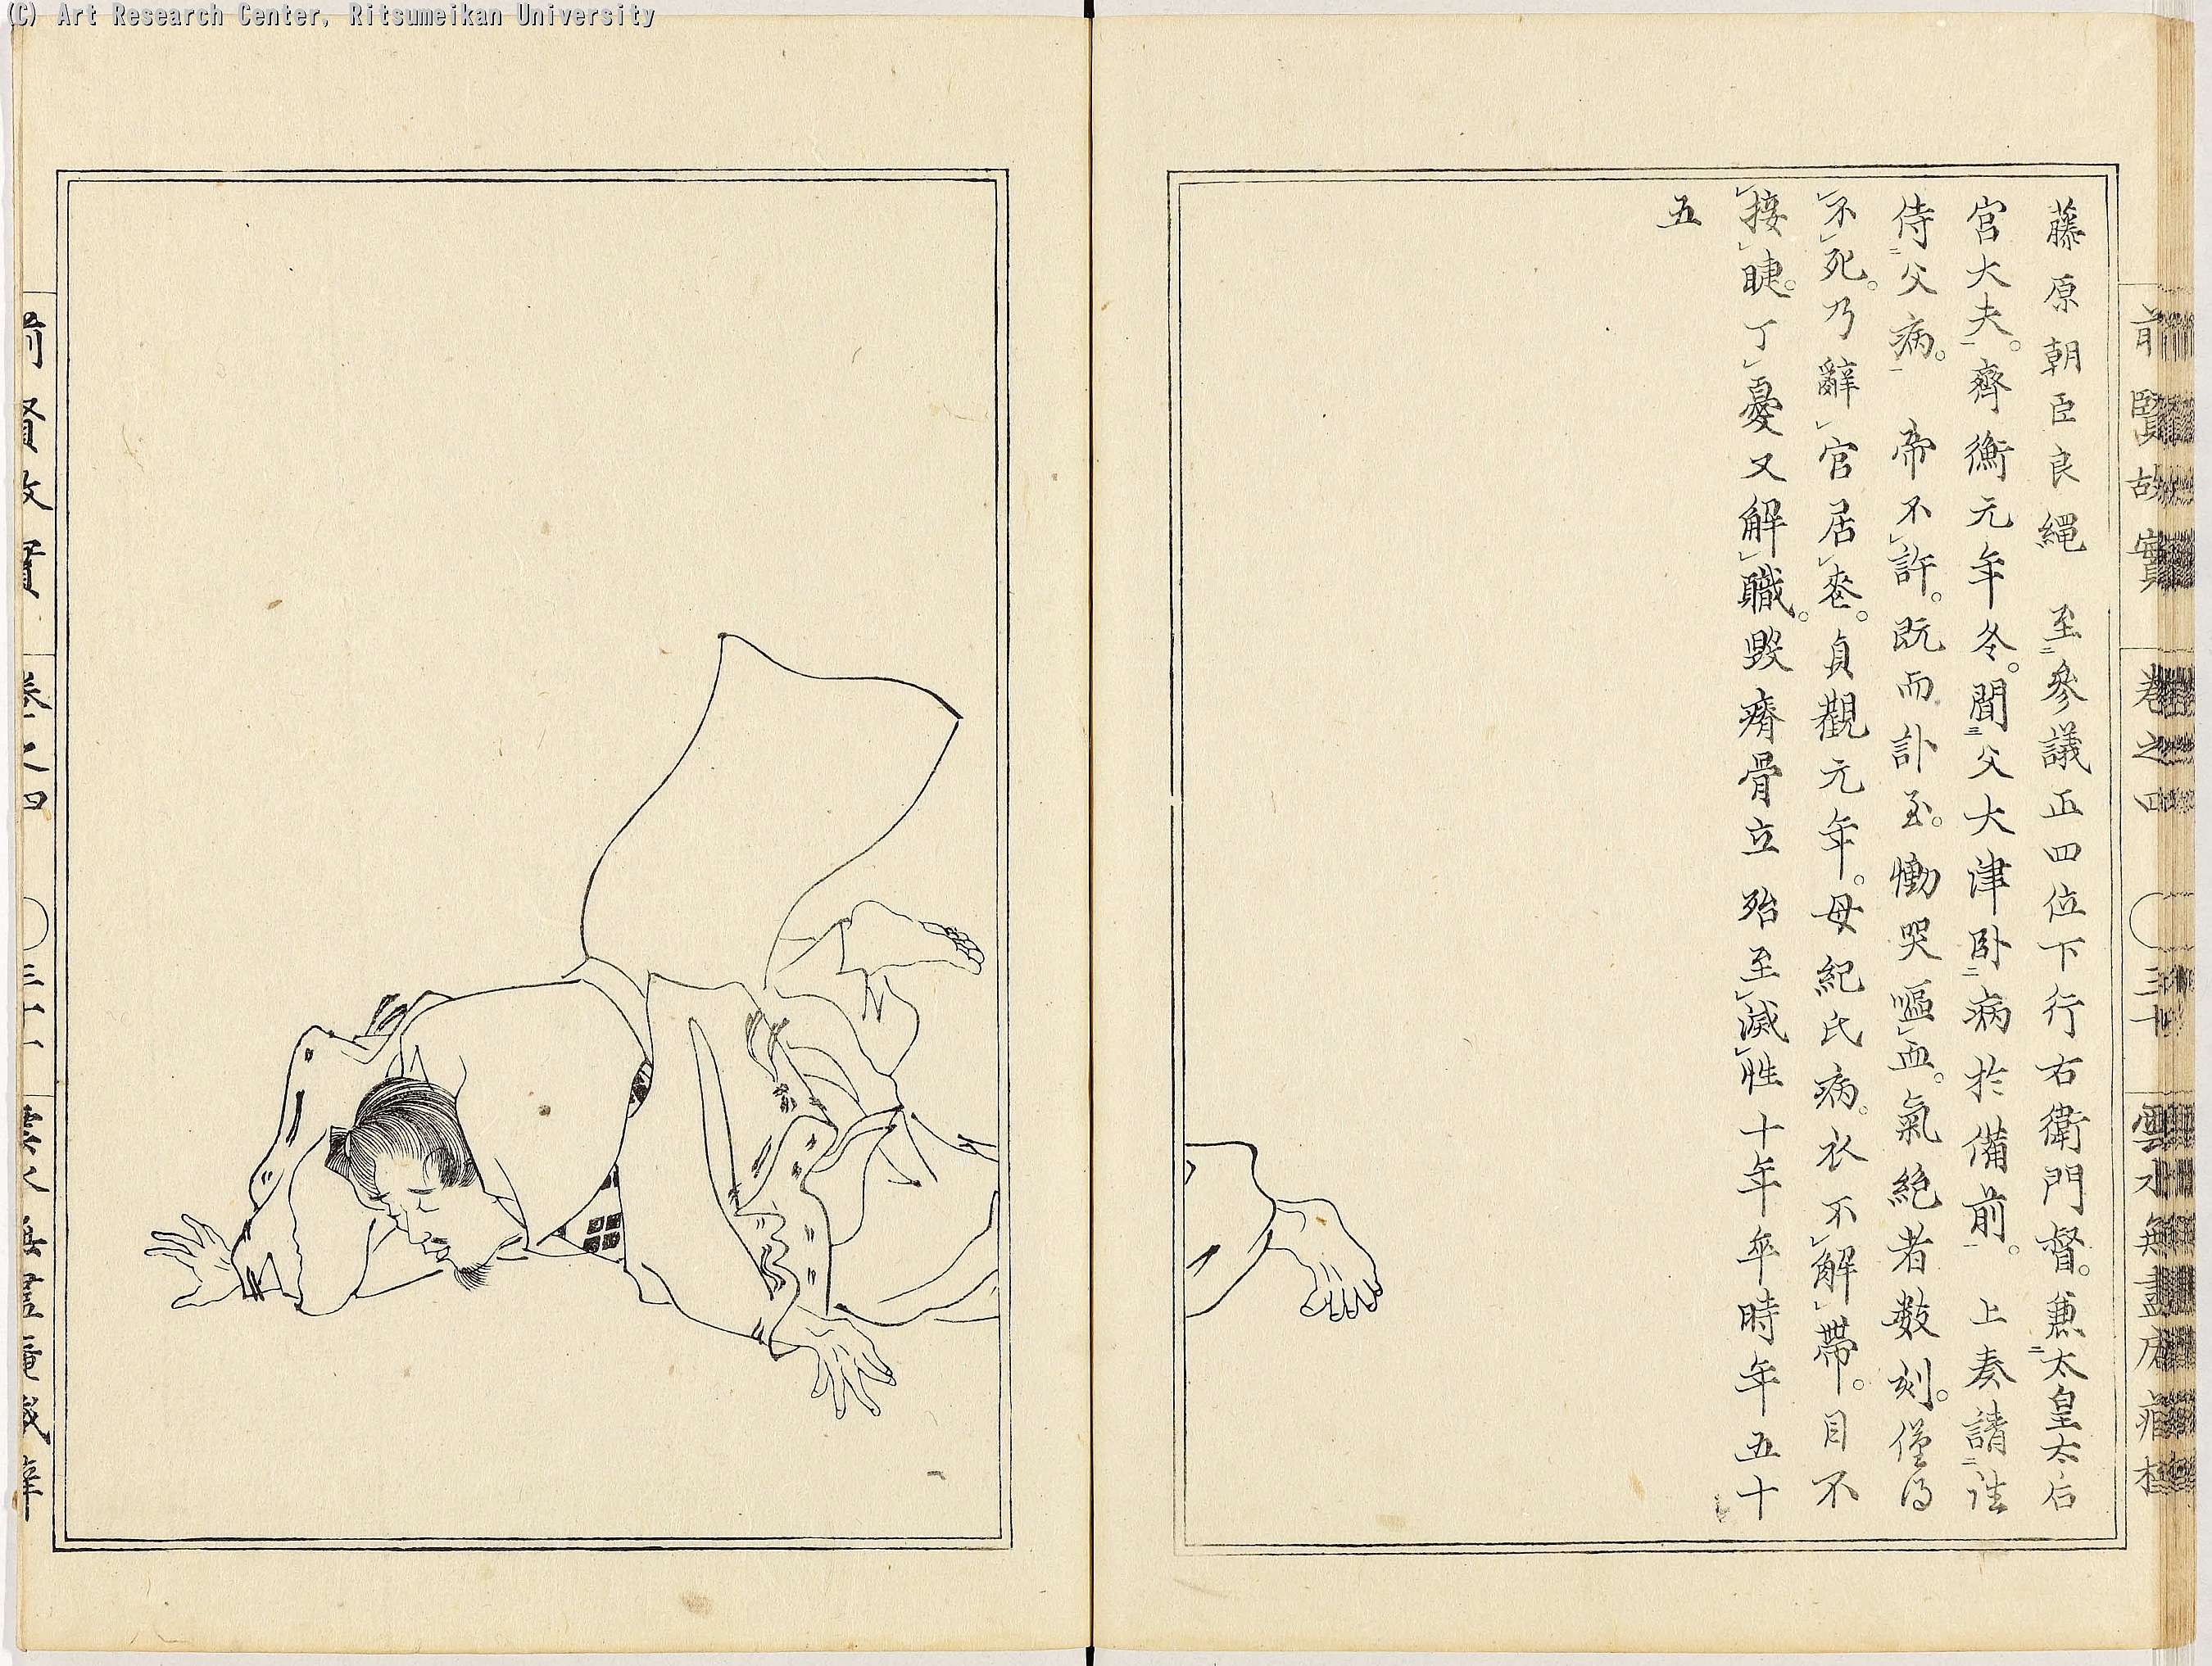 (C) Art Research Center, Ritsumeikan University
前賢故實 巻之四 三十 雲水無盡庵
藤原朝臣良繩 至參議正四位下行右衛門督。兼太皇太后
宮大夫。齊衡元年冬。聞父大津卧病於備前。 上奏請
侍父病。 帝不許。既而訃至。慟哭嘔血。氣絶者数刻。僅得
不死。乃辭官居喪。貞觀元年。母紀氏病。衣不解帶。目不
接睫。丁憂又解職。毀瘠骨立 殆至滅性 十年卒時年五十
五
前賢故實 巻之四